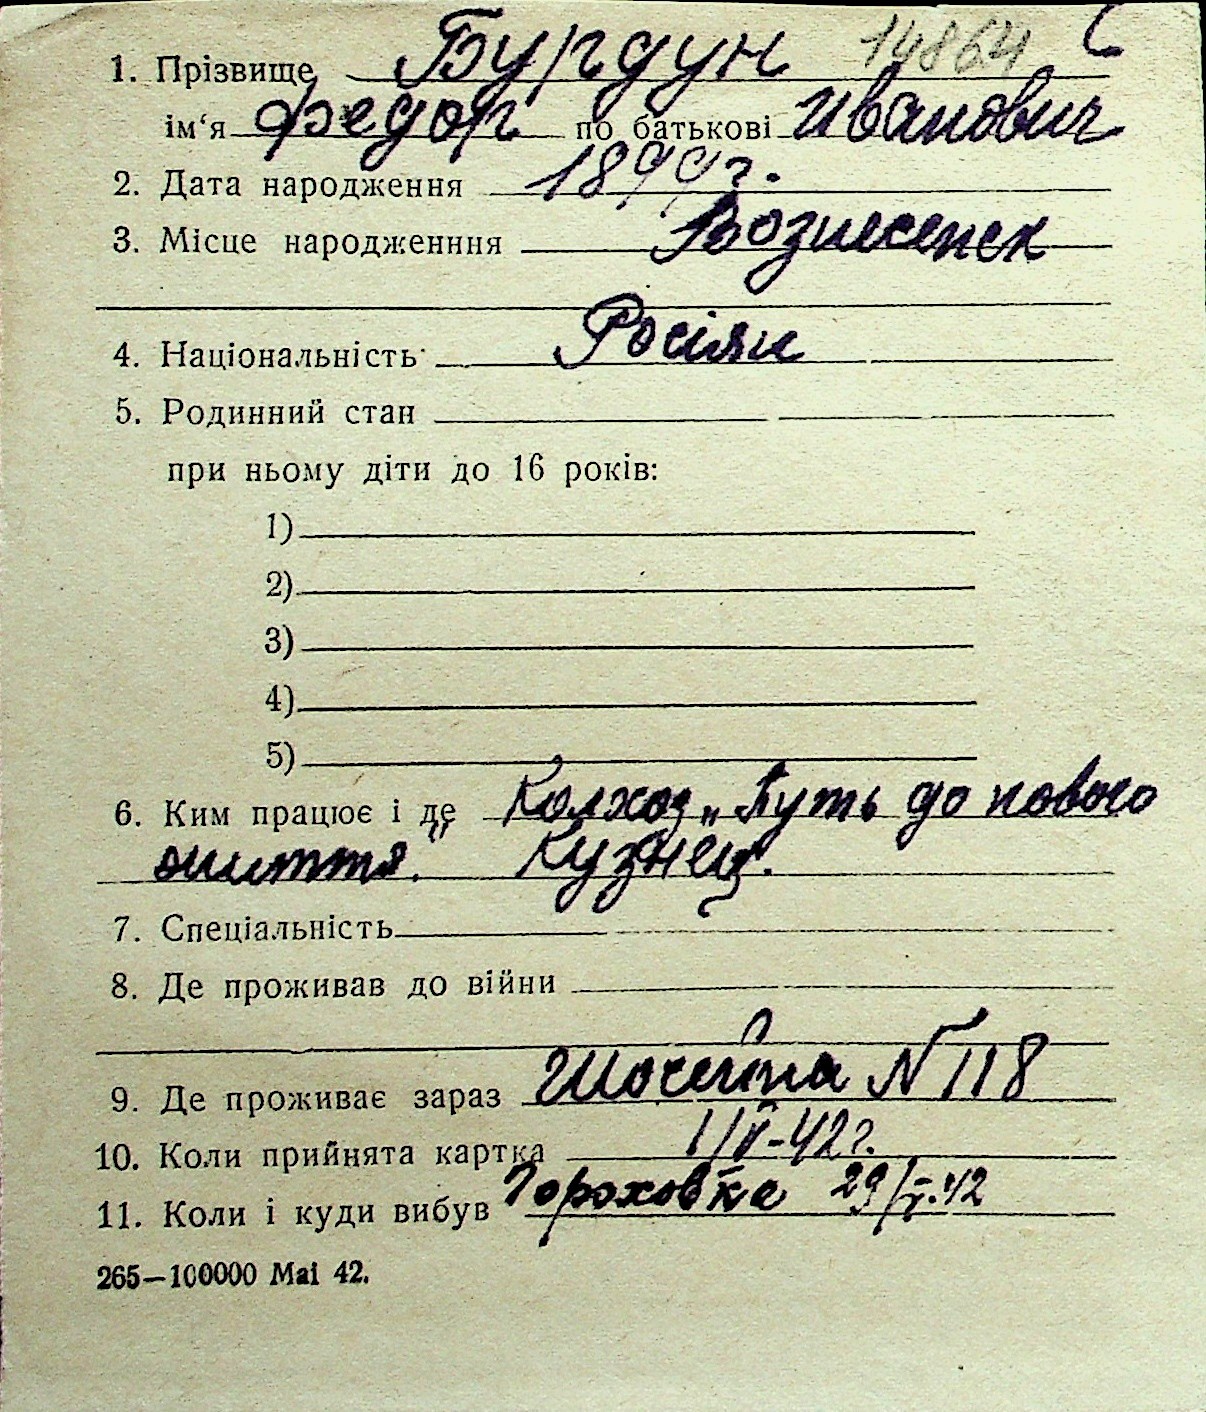 14864
1. Прізвище Бурдун
ім‘я Федор по батькові Иванович
2. Дата народження 1899 г.
3. Місце народженння Вознесенск
4. Національність Росіян
5. Родинний стан
при ньому діти до 16 років:
1)
2)
3)
4)
5)
6. Ким працює і де Колхоз „Путь до нового
життя." Кузнец.
7. Спеціальність
8. Де проживав до війни
9. Де проживає зараз N 118
10. Коли прийнята картка
11. Коли і куди вибув Гороховка
265—100000 Mai 42.